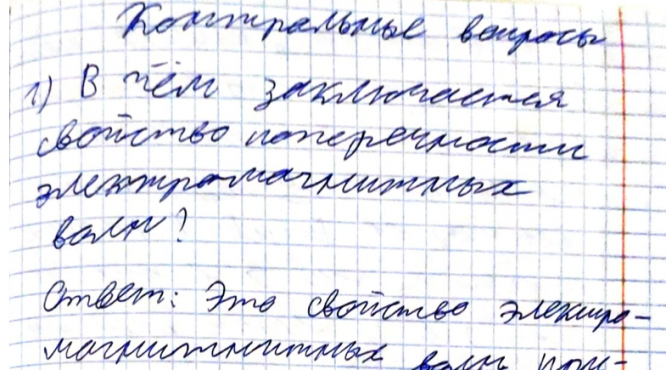 Контрольные вопросы
1) В чём заключается
свойство поперечности
электромагнитных
волн?
Ответ: Это свойство электро-
магнитнитных волн